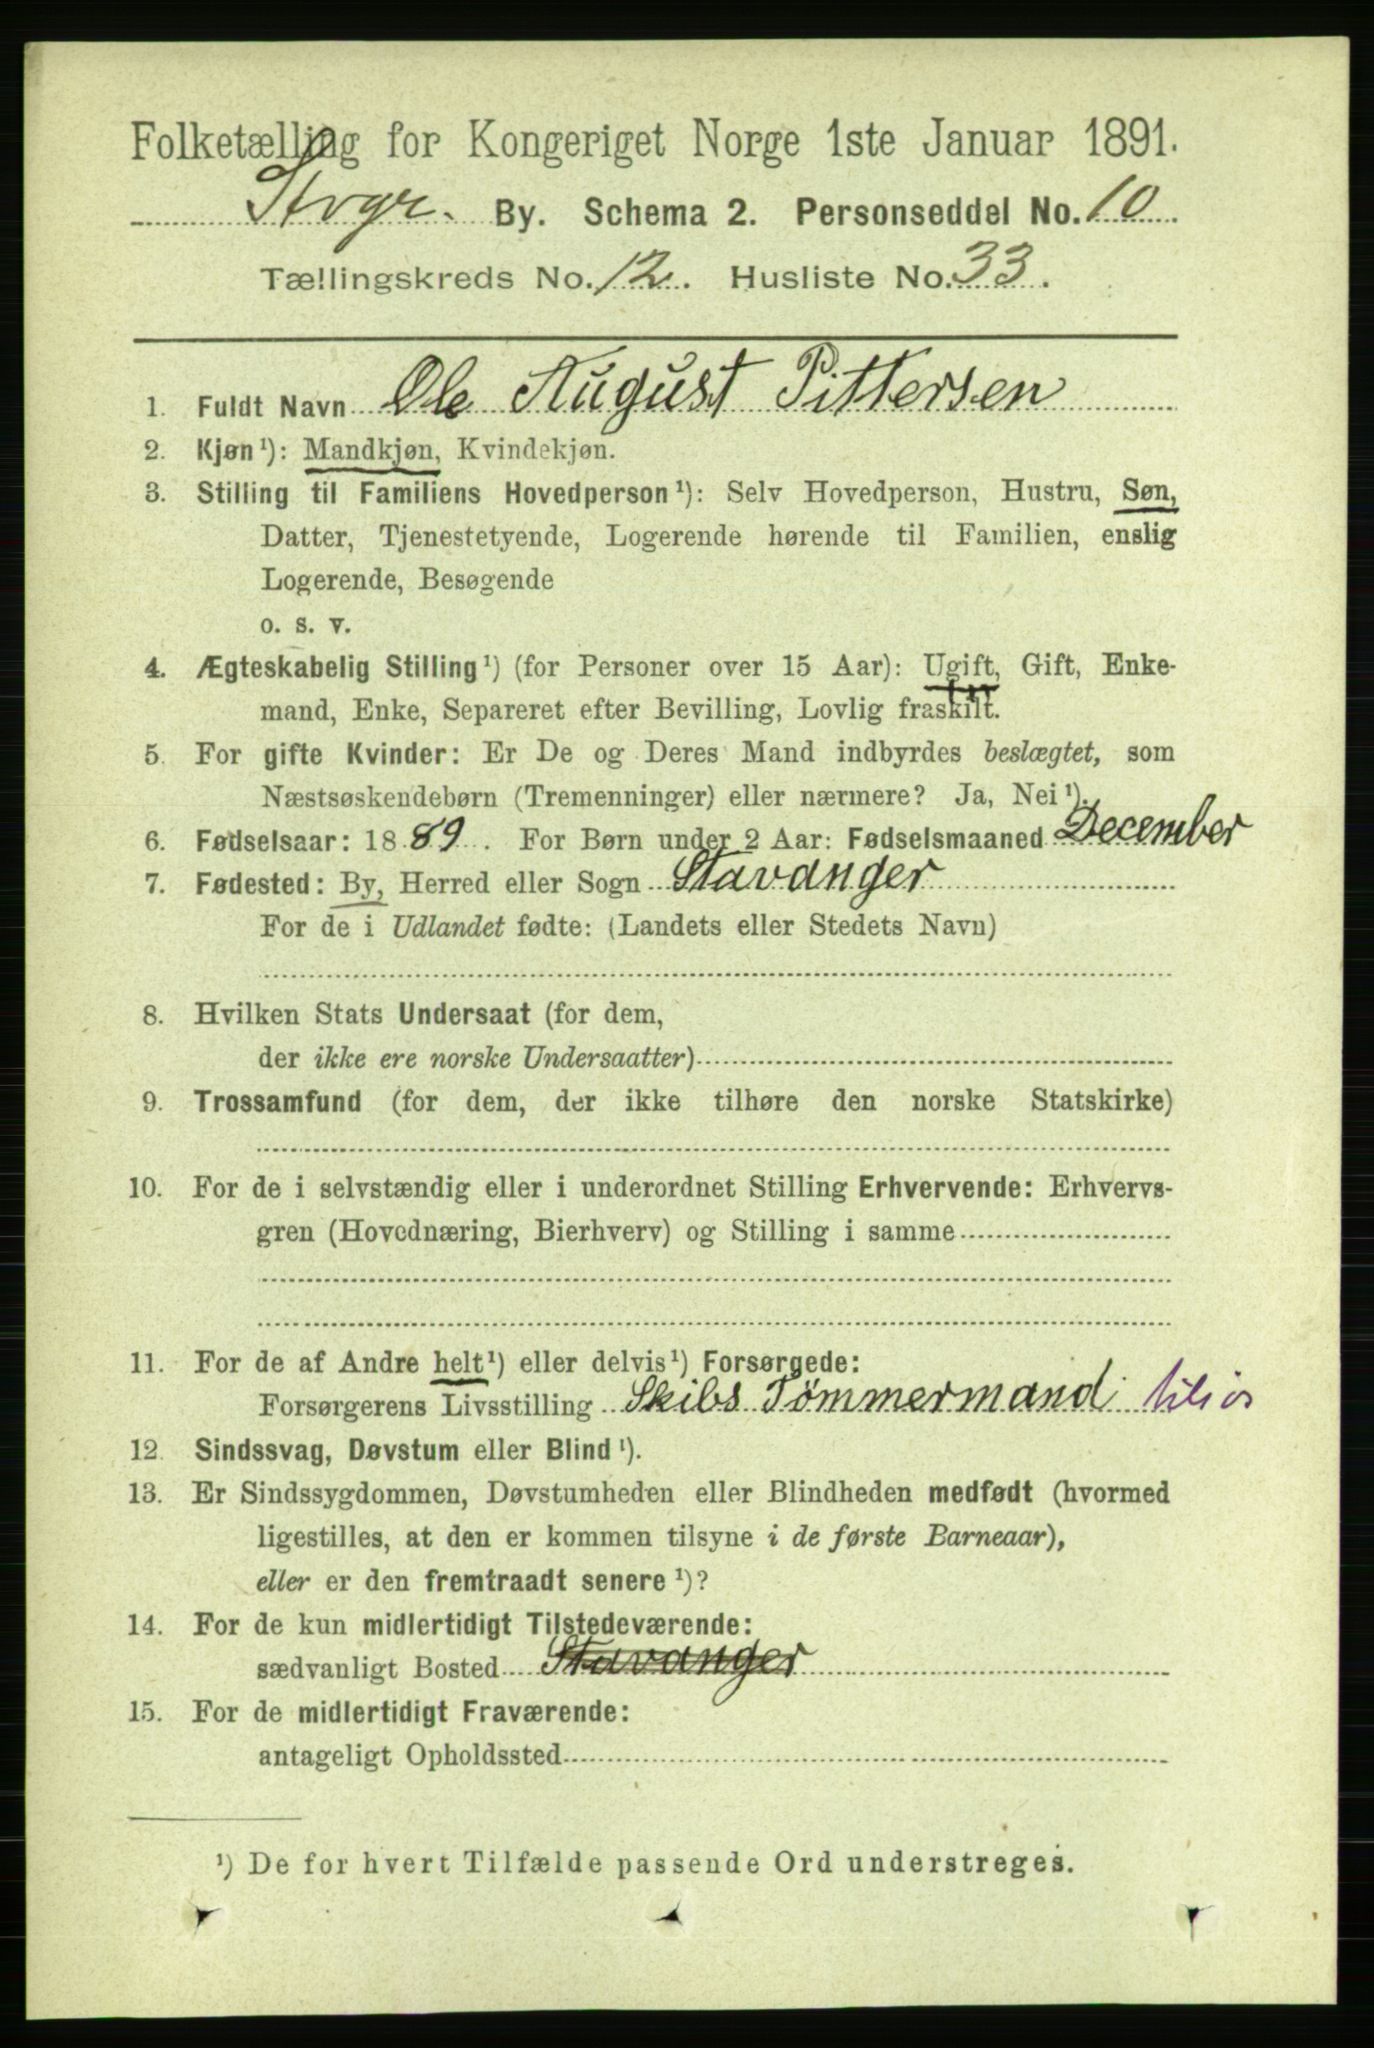 Folketælling for Kongeriget Norge 1ste Januar 1891.
Stvgr. By. Schema 2. Personseddel No. 10
Tællingskreds No. 12. Husliste No. 33.
1. Fuldt Navn Ole August Pittersen
2. Kjøn¹): Mandkjøn, Kvindekjøn.
3. Stilling til Familiens Hovedperson¹): Selv Hovedperson, Hustru, Søn,
Datter, Tjenestetyende, Logerende hørende til Familien, enslig
Logerende, Besøgende
o. s. v.
4. Ægteskabelig Stilling¹) (for Personer over 15 Aar): Ugift, Gift, Enke-
mand, Enke, Separeret efter Bevilling, Lovlig fraskilt.
5. For gifte Kvinder: Er De og Deres Mand indbyrdes beslægtet, som
Næstsøskendebørn (Tremenninger) eller nærmere? Ja, Nei¹).
6. Fødselsaar: 1889. For Børn under 2 Aar: Fødselsmaaned December
7. Fødested: By, Herred eller Sogn Stavanger
For de i Udlandet fødte: (Landets eller Stedets Navn)
8. Hvilken Stats Undersaat (for dem,
der ikke ere norske Undersaatter)
9. Trossamfund (for dem, der ikke tilhøre den norske Statskirke)
10. For de i selvstændig eller i underordnet Stilling Erhvervende: Erhvervs-
gren (Hovednæring, Bierhverv) og Stilling i samme
11. For de af Andre helt¹) eller delvis¹) Forsørgede:
Forsørgerens Livsstilling Skibs Tömmermand
12. Sindssvag, Døvstum eller Blind¹).
13. Er Sindssygdommen, Døvstumheden eller Blindheden medfødt (hvormed
ligestilles, at den er kommen tilsyne i de første Barneaar),
eller er den fremtraadt senere¹)?
14. For de kun midlertidigt Tilstedeværende:
sædvanligt Bosted Stavanger
15. For de midlertidigt Fraværende:
antageligt Opholdssted
¹) De for hvert Tilfælde passende Ord understreges.